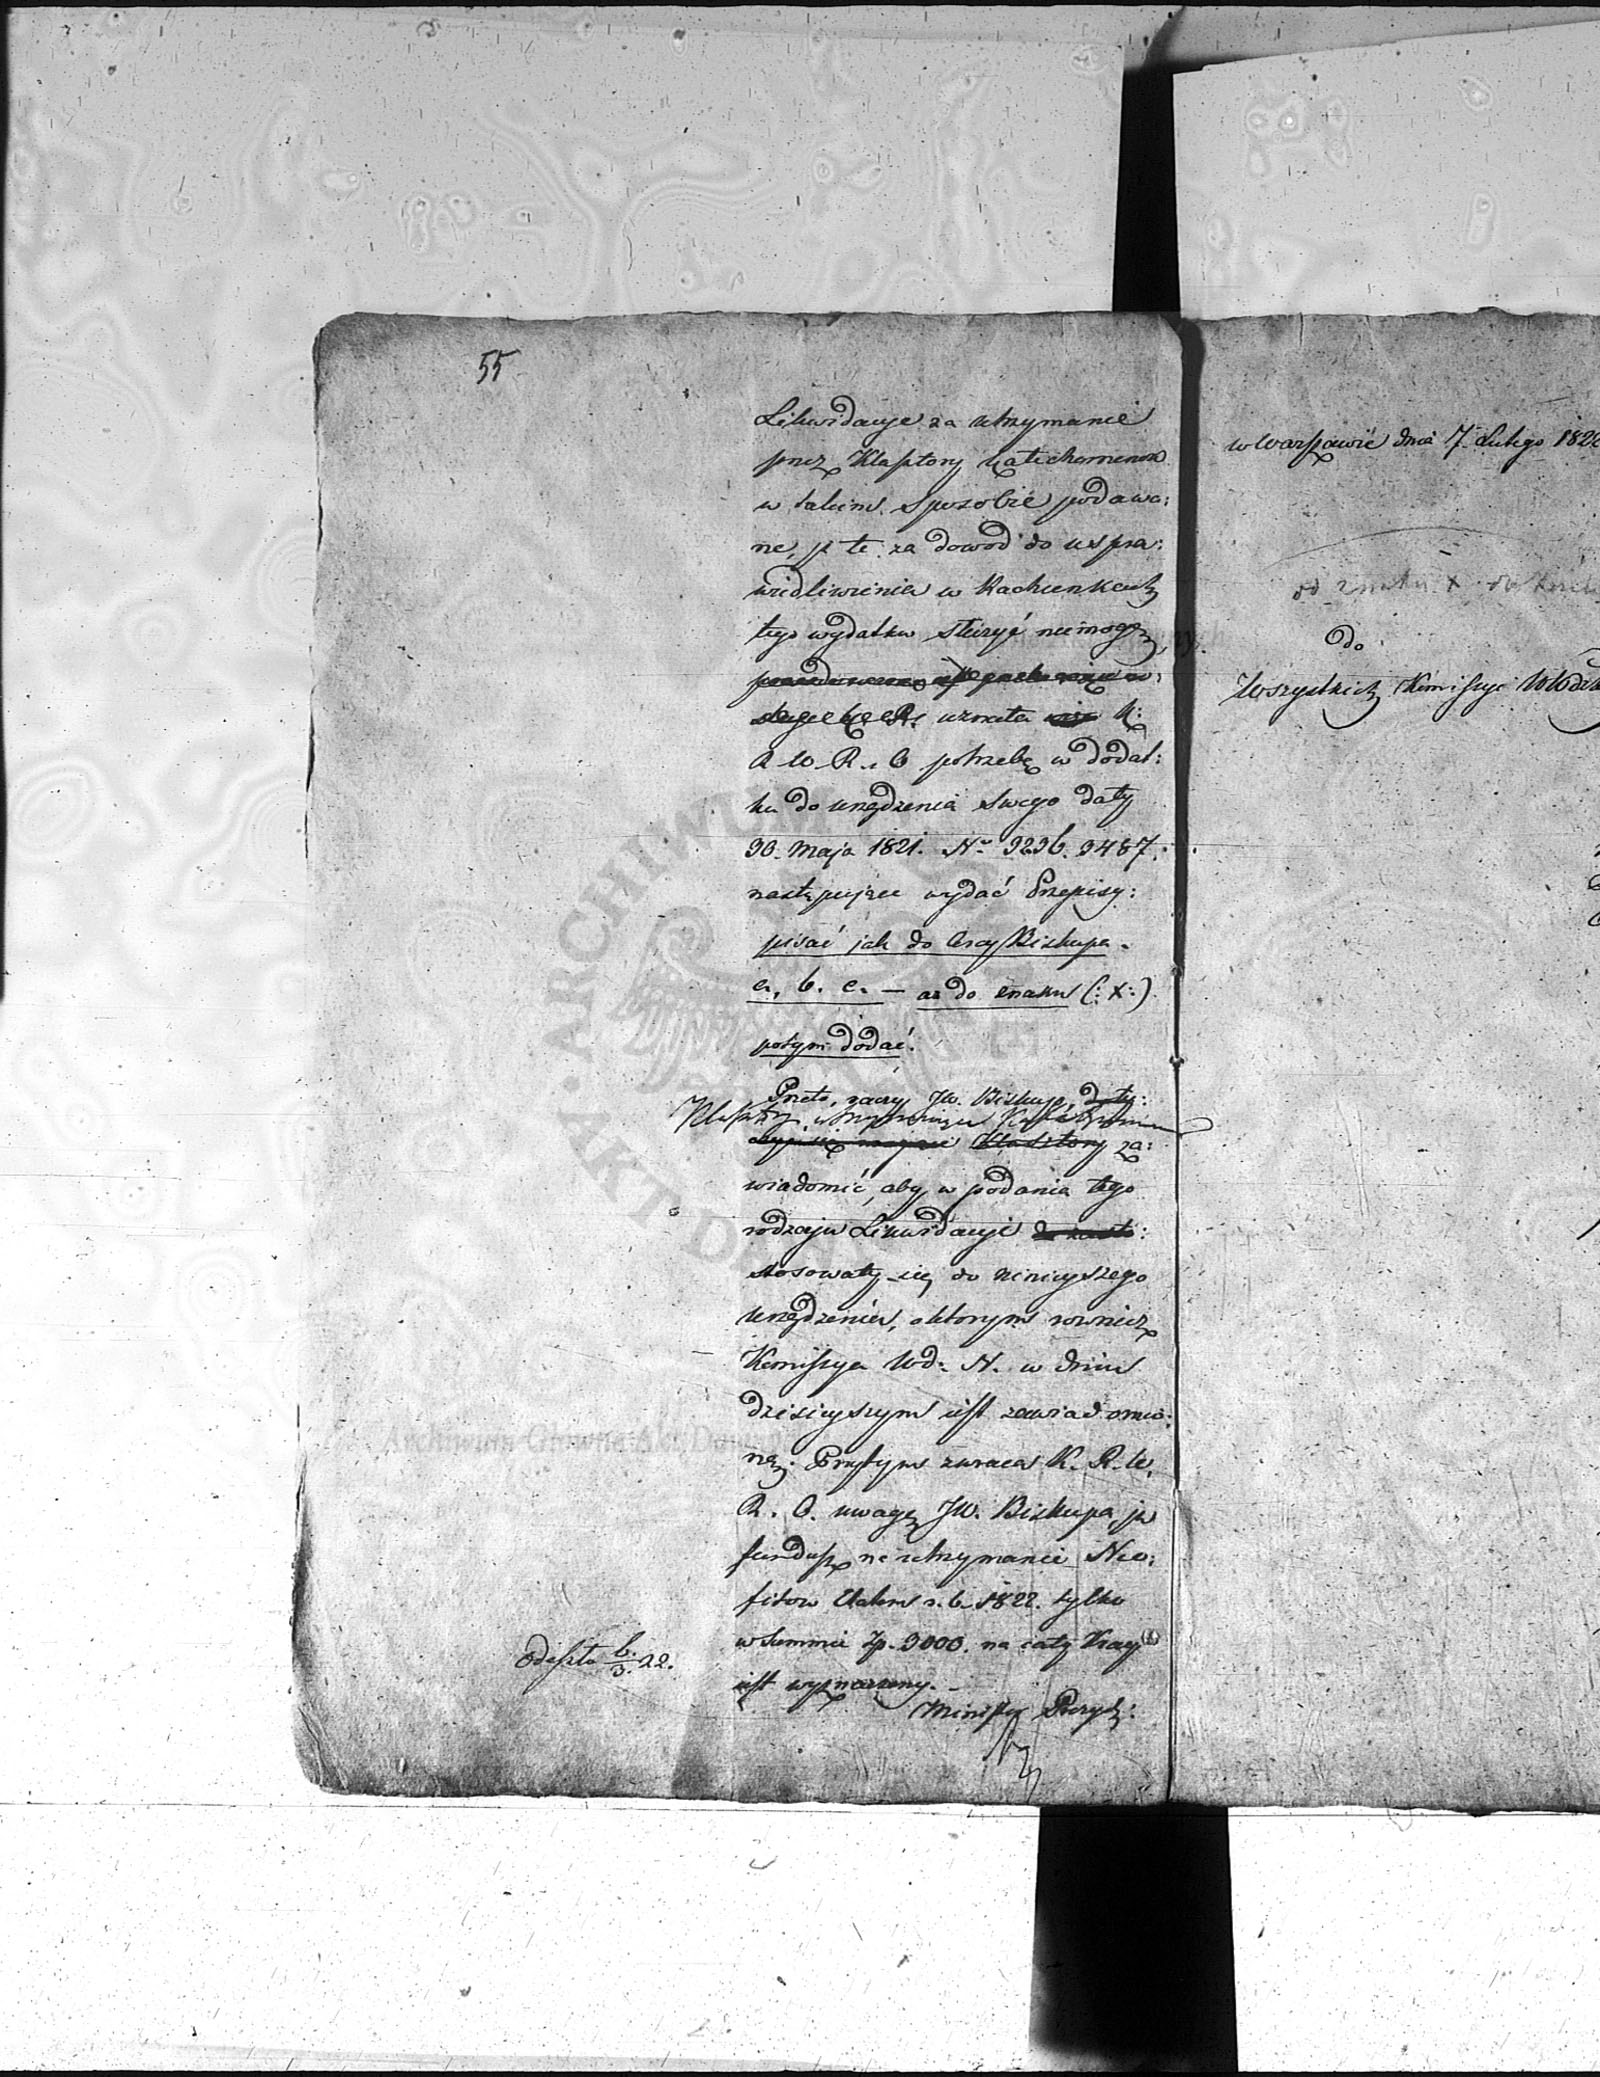 55
Likwidacye za utrzymanie
przez Klasztory Katechumenow
w takim sposobie podawa:
ne, iż te za dowod do uspra:
wiedliwienia w Rachunkach
tego wydatku służyć niemogą,
uznała K:
R W. R. i O potrzebę w dodat:
ku do urządzenia swego daty
30. Maja 1821. No 3236. 3487.
następujące wydać Przepisy:
pisać jak do Arcy Biskupa.
a, b. c. — aż do znaku (: X :)
potym dodać.
Przeto, raczy JW. Biskup,
Klasztory utrzymujące
za:
wiadomić, aby w podaniu tego
rodzaju Likwidacyi
stosowały się do ninieyszego
urządzenia, o ktorym rownież
Kommissya Wd: N. w dniu
dzisieyszym iest zawiadomio:
ną. Przytym zwraca K. R. W.
R. O. uwagę JW. Biskupa, iż
fundusz na utrzymanie Neo:
fitow Etatem r. b. 1822. tylko
w Summie Zp. 3000. na cały Kray
iest wyznaczony. —
Minister Prezyd:
Odeszło 6/3. 22.
w Warszawie dnia 7. Lutego 182
od znaku X do
do
Wszystkich Kommissyi